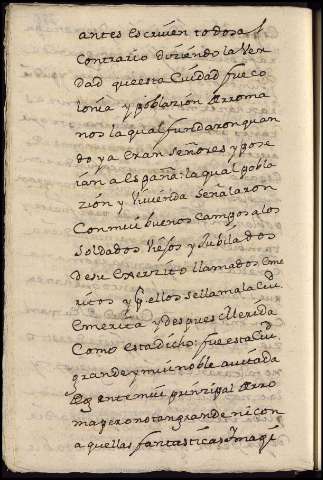 antes escriven todos al
contrario diziendo la ver
dad que esta Ciudad fue co
lonia y poblazión de Roma
nos la qual fundaron quan
do ya eran señores y pose
ían a España: la qual pobla
zión y vivienda señalaron
con mui buenos campos a los
soldados viejos y jubilados
de su exerzito llamados eme
ritos y por ellos se llama la Ciud.
emerita y despues Merida
como esta dicho: fue esta Ciud.
grande y mui noble avitada
de gente mui prinzipal de Ro
ma pero no tan grande ni con
aquellas fantasticas ymagi